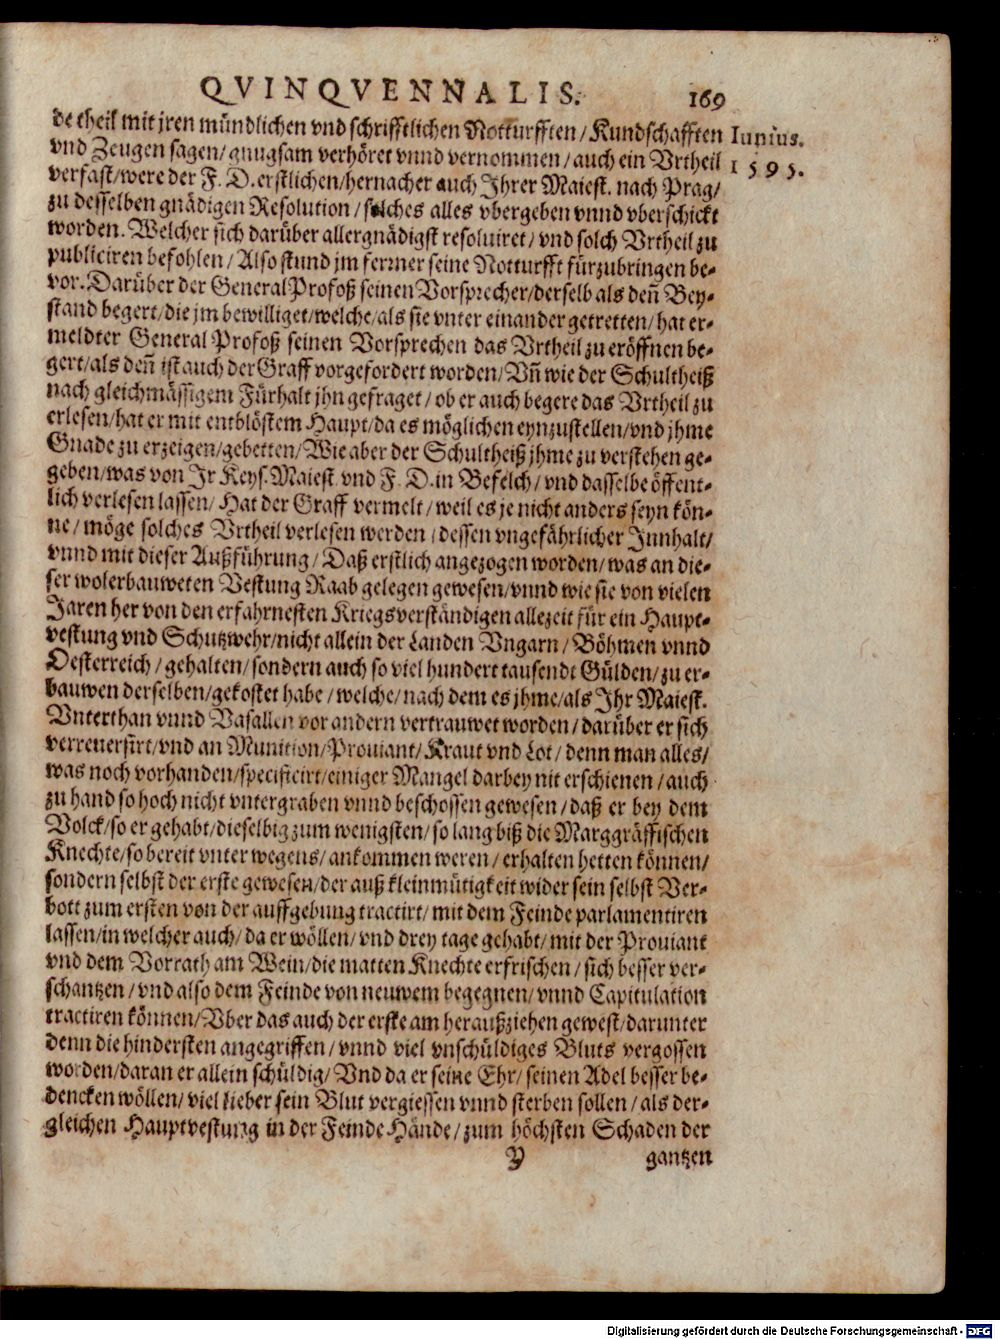 QVINQVENNALIS. 169
de theil mit jren mündlichen vnd schrifftlichen Notturfften/ Kundschafften
Iunius.
vnd Zeugen sagen/ gnugsam verhöret vnnd vernommen/ auch ein Vrtheil
1595.
verfast/ were der F. D. erstlichen/ hernacher auch Ihrer Maiest. nach Prag/
zu desselben gnädigen Resolution/ solches alles vbergeben vnnd vberschickt
worden. Welcher sich darüber allergnädigst resoluiret/ vnd solch Vrtheil zu
publiciren befohlen/ Also stund jm ferrner seine Notturfft fürzubringen be-
vor. Darüber der General Profoß seinen Vorsprecher/ derselb als deñ Bey-
stand begert/ die jm bewilliget/ welche/ als sie vnter einander getretten/ hat er-
meldter General Profoß seinen Vorsprechen das Vrtheil zu eröffnen be-
gert/ als deñ ist auch der Graff vorgefordert worden/ Vñ wie der Schultheiß
nach gleichmässigem Fürhalt jhn gefraget/ ob er auch begere das Vrtheil zu
erlesen/ hat er mit entblöstem Haupt/ da es möglichen eynzustellen/ vnd jhme
Gnade zu erzeigen/ gebetten/ Wie aber der Schultheiß jhme zu verstehen ge-
geben/ was von Jr Keys. Maiest. vnd F. D. in Befelch/ vnd dasselbe öffent-
lich verlesen lassen/ Hat der Graff vermelt/ weil es je nicht anders seyn kön-
ne/ möge solches Vrtheil verlesen werden/ dessen vngefährlicher Innhalt/
vnnd mit dieser Außführung/ Daß erstlich angezogen worden/ was an die-
ser wolerbauweten Vestung Raab gelegen gewesen/ vnnd wie sie von vielen
Jaren her von den erfahrnesten Kriegsverständigen allezeit für ein Haupt-
vestung vnd Schutzwehr/ nicht allein der Landen Vngarn/ Böhmen vnnd
Oesterreich/ gehalten/ sondern auch so viel hundert tausendt Gülden/ zu er-
bauwen derselben/ gekostet habe/ welche/ nach dem es jhme/ als Ihr Maiest.
Vnterthan vnnd Vasallen vor andern vertrauwet worden/ darüber er sich
verreuersirt/ vnd an Munition/ Prouiant/ Kraut vnd Lot/ denn man alles/
was noch vorhanden/ specificirt/ einiger Mangel darbey nit erschienen/ auch
zu hand so hoch nicht vntergraben vnnd beschossen gewesen/ daß er bey dem
Volck/ so er gehabt/ dieselbig zum wenigsten/ so lang biß die Marggräffischen
Knechte/ so bereit vnter wegens/ ankommen weren/ erhalten hetten können/
sondern selbst der erste gewesen/ der auß kleinmütigkeit wider sein selbst Ver-
bott zum ersten von der auffgebung tractirt/ mit dem Feinde parlamentiren
lassen/ in welcher auch/ da er wöllen/ vnd drey tage gehabt/ mit der Prouiant
vnd dem Vorrath am Wein/ die matten Knechte erfrischen/ sich besser ver-
schantzen/ vnd also dem Feinde von neuwem begegnen/ vnnd Capitulation
tractiren können/ Vber das auch der erste am heraußziehen gewest/ darunter
denn die hindersten angegriffen/ vnnd viel vnschüldiges Bluts vergossen
worden/ daran er allein schüldig/ Vnd da er seine Ehr/ seinen Adel besser be-
dencken wöllen/ viel lieber sein Blut vergiessen vnnd sterben sollen/ als der-
gleichen Hauptvestung in der Feinde Hände/ zum höchsten Schaden der
Y gantzen
Digitalisierung gefördert durch die Deutsche Forschungsgemeinschaft - DFG